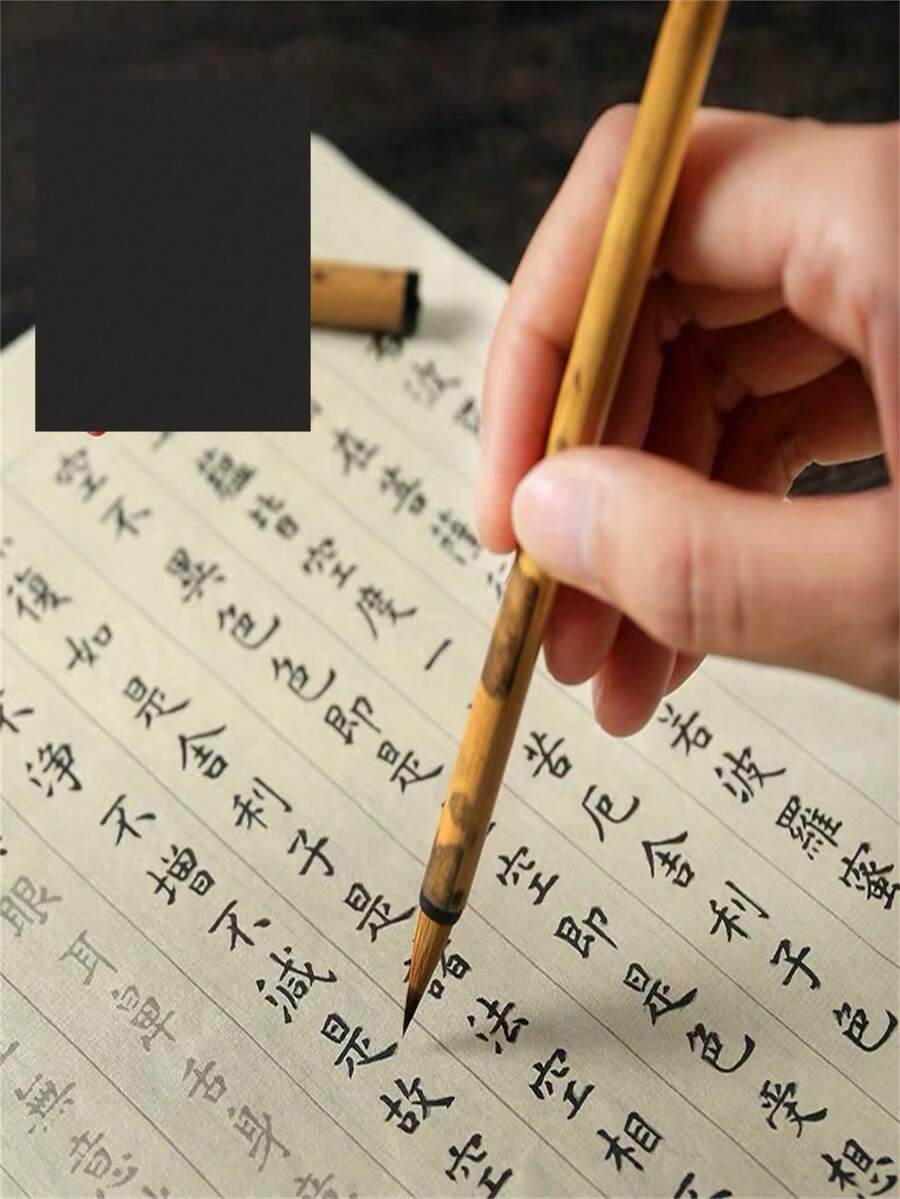 波
在菩薩行
若波羅蜜
蘊皆空度一
苦厄舍利子色
空不異色色即是
空即是色受想
復如是舍利子是諸法空相不
不淨不增不減是故空
眼耳鼻舌身意
無意